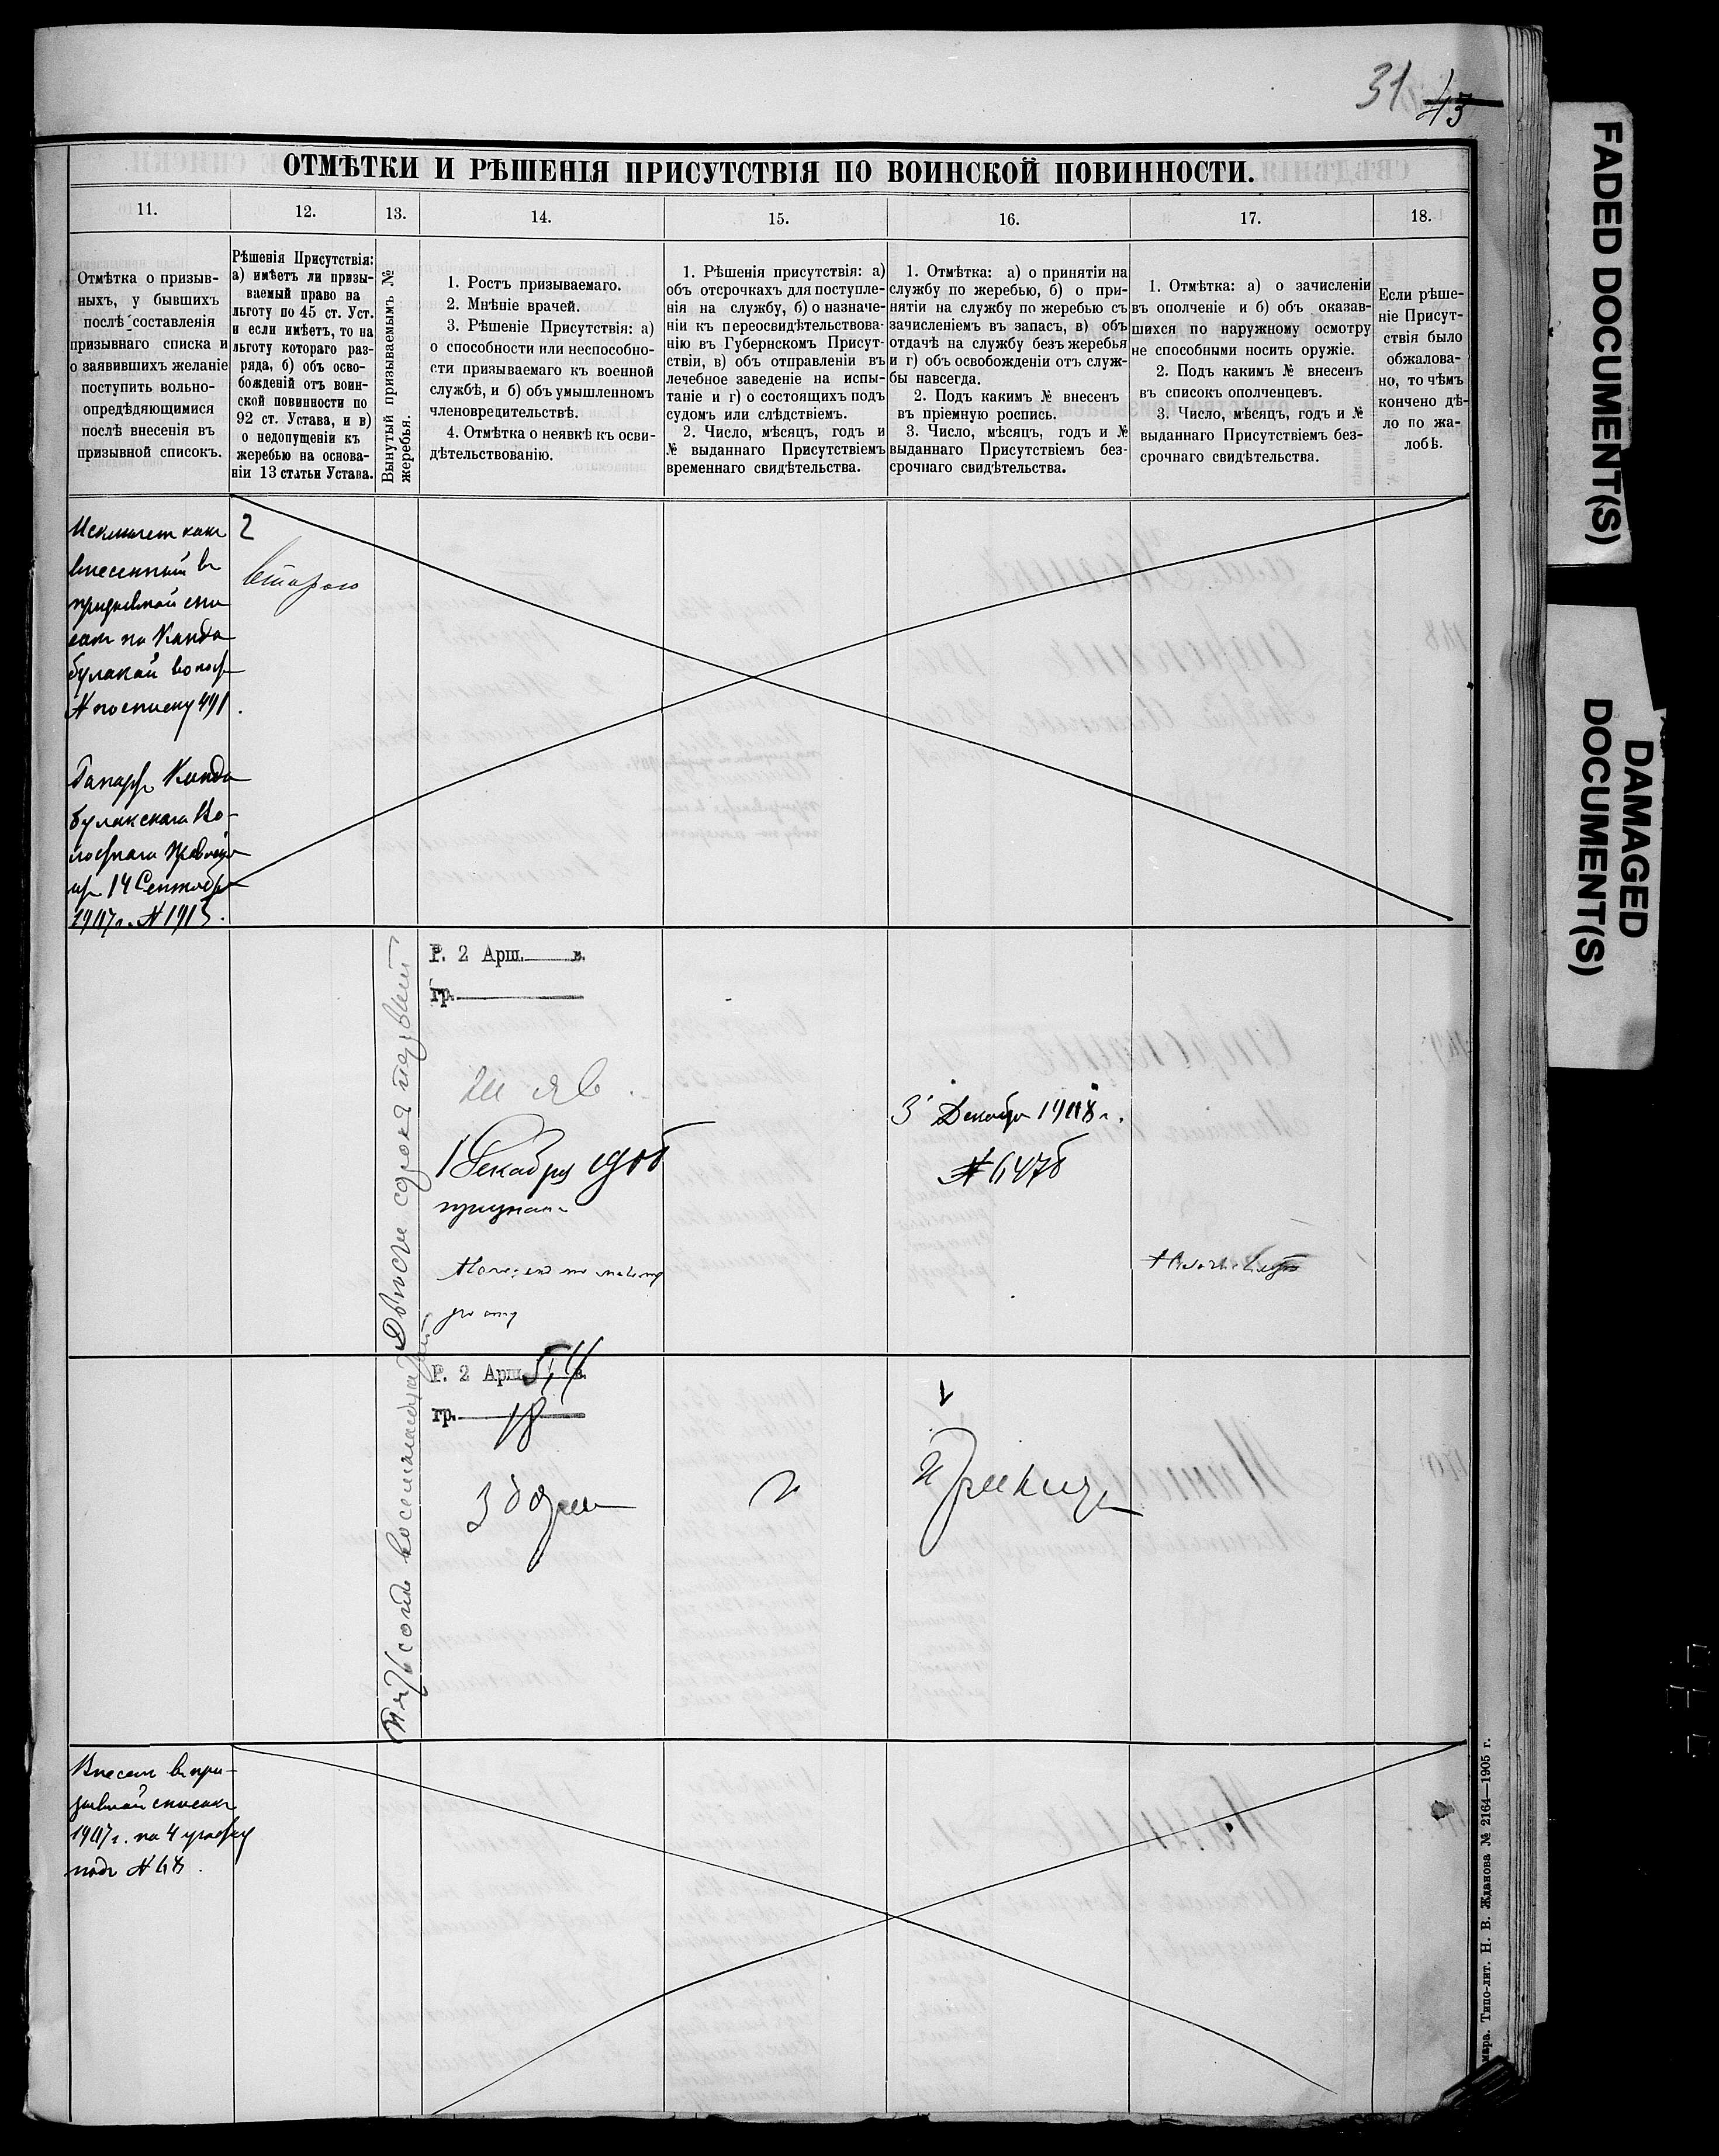 31 45
ОТМѢТКИ И РѢШЕНІЯ ПРИСУТСТВІЯ ПО ВОИНСКОЙ ПОВИННОСТИ.
11.
12.
13.
14.
15.
16.
17.
18.
Отмѣтка о призыв-
ныхъ, у бывшихъ
послѣ составленія
призывнаго списка и
о заявившихъ желаніе
поступить вольно-
опредѣдяющимися
послѣ внесенія въ
призывной список.
Рѣшенія Присутствія:
а) имѣетъ ли призы-
ваемый право на
льготу по 45 ст. Уст.
и если имѣетъ, то на
льготу котораго раз-
ряда, б) объ осво-
божденій отъ воин-
ской повинности по
92 ст. Устава, и в)
о недопущеніи къ
жеребью на основа-
ніи 13 статьи Устава.
Вынутый призываемымъ №
жеребья.
1. Ростъ призываемаго.
2. Мнѣніе врачей.
3. Рѣшеніе Присутствія: а)
о способности или неспособно-
сти призываемаго къ военной
службѣ, и б) объ умышленномъ
членовредительствѣ.
4. Отмѣтка о неявкѣ къ осви-
дѣтельствованію.
1. Рѣшенія присутствія: а)
объ отсрочкахъ для поступле-
нія на службу, б) о назначе-
ніи къ переосвидѣтельствова-
нію въ Губернскомъ Присут-
ствіи, в) объ отправленіи въ
лечебное заведеніе на испы-
таніе и г) о состоящихъ подъ
судомъ или слѣдствіемъ.
2. Число, мѣсяцъ, годъ и
№ выданнаго Присутствіемъ
временнаго свидѣтельства.
1. Отмѣтка: а) о принятіи на
службу по жеребью, б) о при-
нятіи на службу по жеребью съ
зачисленіемъ въ запасъ, в) объ
отдачѣ на службу безъ жеребья
и г) объ освобожденіи отъ служ-
бы навсегда.
2. Подъ какимъ № внесенъ
въ пріемную роспись.
3. Число, мѣсяцъ, годъ и №
выданнаго Присутствіемъ без-
срочнаго свидѣтельства.
1. Отмѣтка: а) о зачисленіи
въ ополченіе и б) объ оказав-
шихся по наружному осмотру
не способными носить оружіе.
2. Подъ какимъ № внесенъ
въ списокъ ополченцевъ.
3. Число, мѣсяцъ, годъ и №
выданнаго Присутствіемъ без-
срочнаго свидѣтельства.
Если рѣше-
ніе Присут-
ствія было
обжалова-
но, то чѣмъ
кончено дѣ-
ло по жа-
лобѣ.
Исключенъ какъ
внесенный въ
призывной спи
сокъ по Канда
булакой волос
№ по списку 491.
Канда
булакскаго Во-
лостнаго Правленія
14 Сентября
1907 г. № 1913.
2
второго
Двѣсти сорокъ первый
Р. 2 Арш. в.
гр.
не яв.
1 Декабря 1908
признанъ
3 Декабря 1908 г.
№ 6478
Пятьсотъ восемнадцатый
Р. 2 Арш. 5 1/4 в.
гр. 18
Годенъ
Принятъ
Внесенъ въ при-
зывной списокъ
1907 г. по 4 участку
подъ № 68.
мара. Типо-лит. Н. В. Жданова № 2164—1905 г.
FADED DOCUMENT(S)
DAMAGED
DOCUMENT(S)